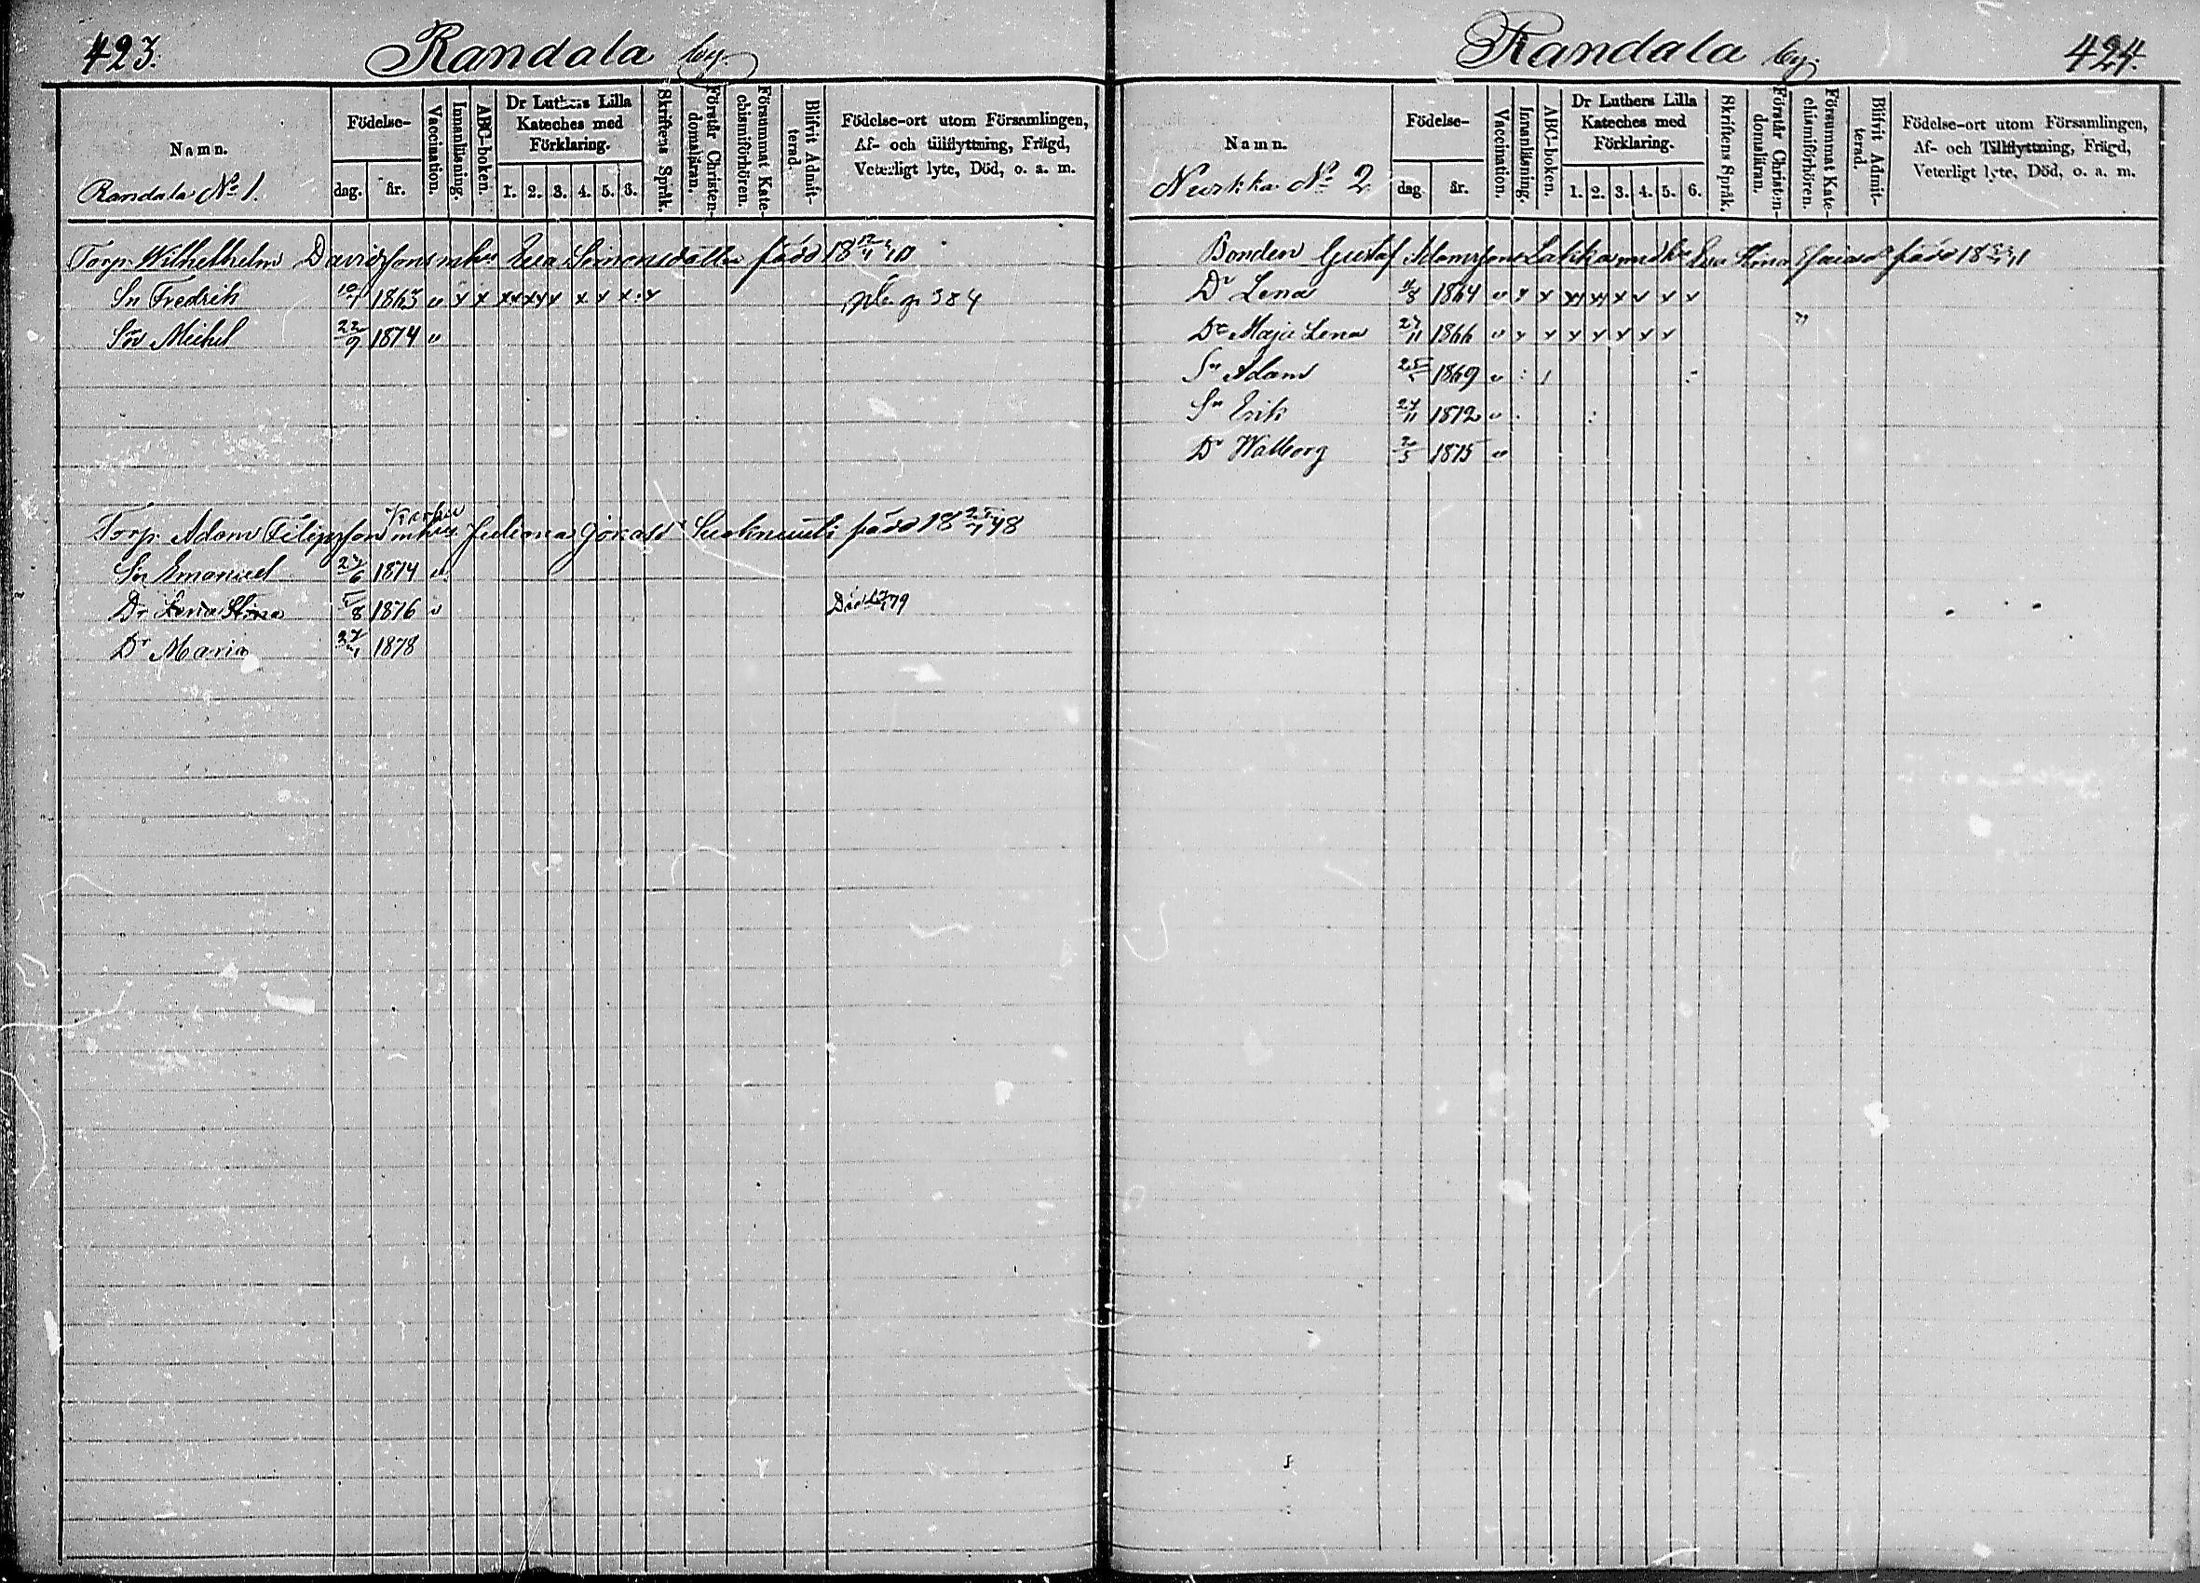 423.
Randala by.
Namn.
Randala No 1.
Födelse-
dag.
år.
Vaccination.
Innanläsning.
ABC-boken.
Dr Luthers Lilla
Kateches med
Förklaring.
1. 2. 3. 4. 5. 6.
Skriftens Språk.
Förstår Christen-
domsläran.
Försummat Kate-
chismiförhören.
Blifvit Admit-
terad.
Födelse-ort utom Församlingen,
Af- och tillflyttning, Frägd,
Veterligt lyte, Död, o. a. m.
Torp. Wilhelhelm Davidsson mhu Eva Simonsdotter född 18
Sn Fredrik 1863 v x x xx xx x x x x 384
Sn Michel 22/9 1874 v
Torp. Adam Filipsson mhu Juliana född 18 48
Sn Emanuel 27/6 1874 v
Dr Lena Stina 8 1876 v Död 79
Dr Maria 1878
424.
Randala by.
Namn.
No 2
Födelse-
dag
år.
Vaccination.
Innanläsning.
ABC-boken.
Dr Luthers Lilla
Kateches med
Förklaring.
1. 2. 3. 4. 5. 6.
Skriftens Språk.
Förstår Christen-
domsläran.
Försummat Kate-
chismiförhören.
Blifvit Admit-
terad.
Födelse-ort utom Församlingen,
Af- och Tillflyttning, Frägd,
Veterligt lyte, Död, o. a. m.
Bonden Gustaf Adamsson Lakka Eva Stina född 18
Dr Lena 1864 v x x xx xx x x x x
Dr Maja Lena 27/11 1866 v x x x x x x x
Sn Adam 1869 v
Sn Erik 27/11 1872 v
Dr Walborg 2/5 1875 v